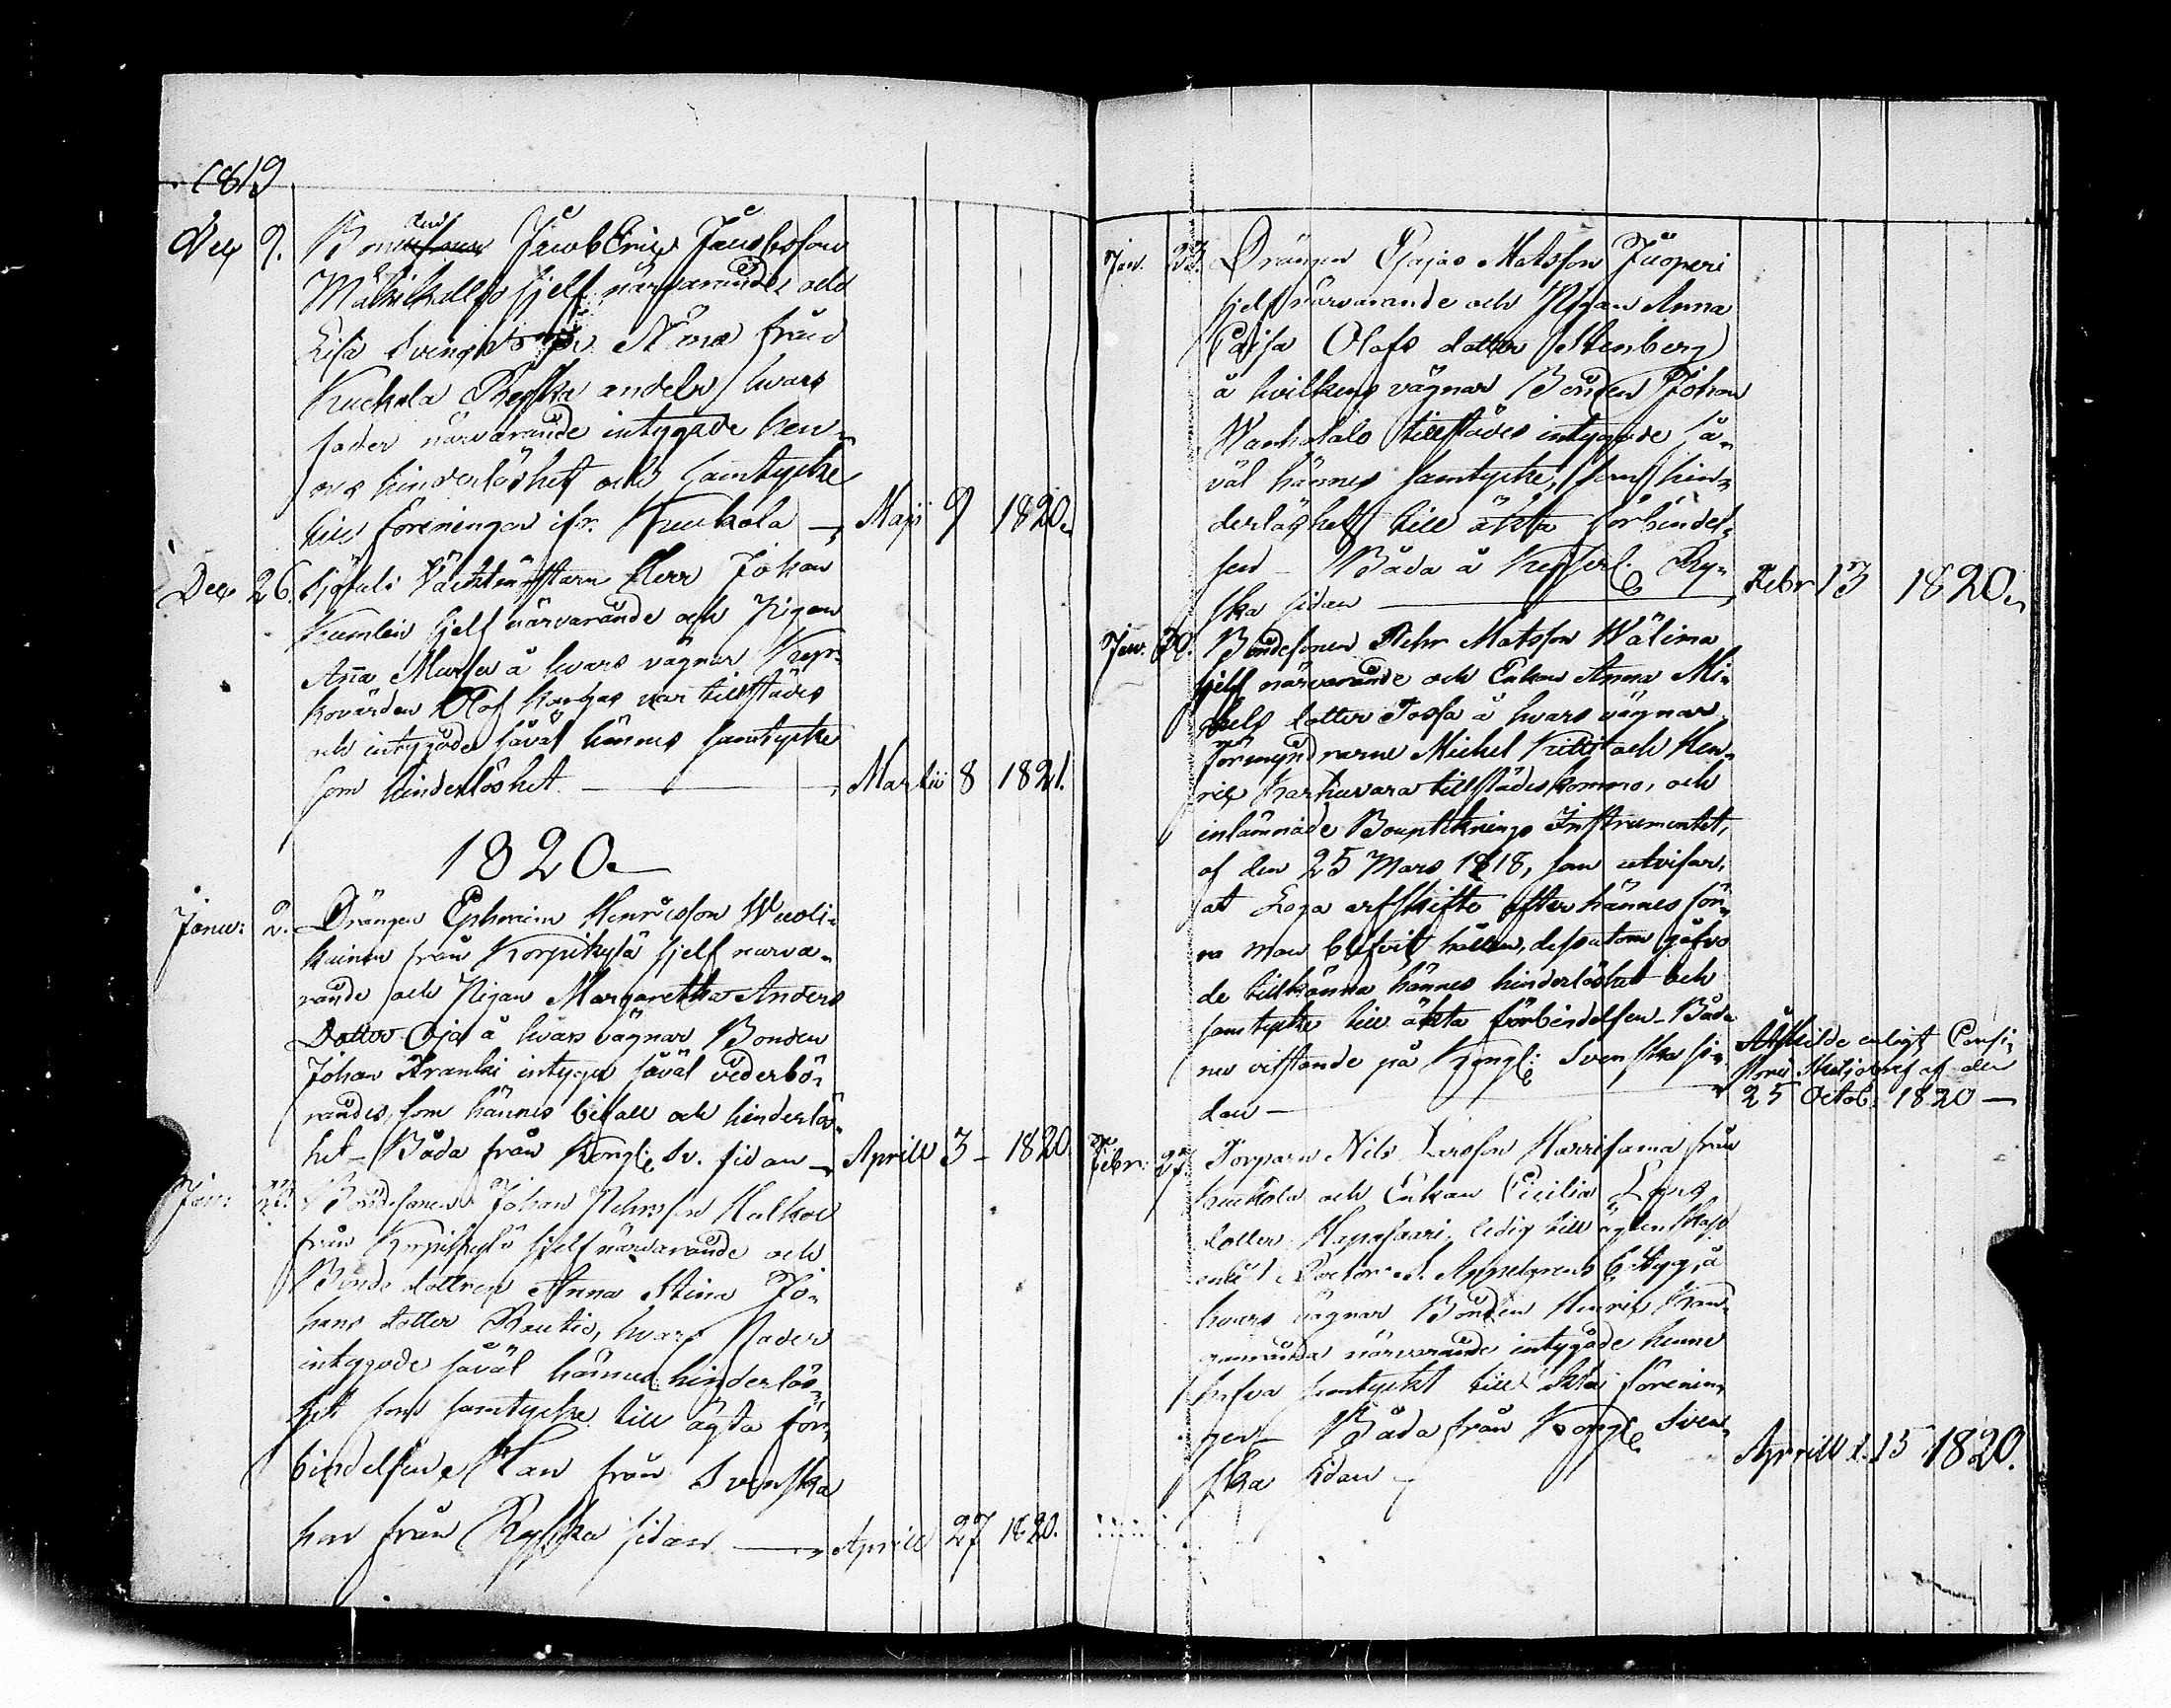 1819
Dec 9. Bonden Jacob Eric Jacobsson
Mäkikallio sjelf närvarande och
Lisa från
Kuckola Ryska andeln, hvars
fader närvarande intygade hen-
nes hinderlöshet och samtycke
till föreningen ifr. Kuckola — Maji 9 1820.
Dec 26. Herr Johan
Kumlin sjelf närvarande och Pigan
Anna å hvars vägnar
Olof var tillstädes
och intygade såväl hännes samtycke
som hinderlöshet — Martii 8 1821.
1820.
Janu: 2. Drängen Ephraim Henricsson Wuoli-
kainen från Korpikylä sjelf närva-
rande och Pigan Margaretha Anders
Dotter Oja å hvars vägnar Bonden
Johan intygar såväl vederbö-
randes, som hännes bifall och hinderlös-
het — Båda från Kongl: Sv. sidan — Aprill 3 — 1820
Jan: Bondesonen Johan
från Korpikylä sjelf närvarande och
Bonde dottren Anna Stina Jo-
hans dotter Rautio, hvars Fader
intygade såväl hännes hinderlös-
het som samtycke till ägta för-
bindelsen. Han från Svenska
hon från Ryska sidan — Aprill 27 1820.
Jan. 23. Drängen Esajas Matsson Juoperi
sjelf närvarande och Pigan Anna
Caisa Olofs dotter Stenberg
å hvilkens vägnar Bonden Johan
Wanhatalo tillstädes intygade så-
väl hännes samtycke, som hin-
derlöshet till äkta förbindel-
sen — Båda å Kejserl. Ry-
ska sidan — Febr 13 1820.
Jan. 30. Bondesonen Pehr Matsson Wälima
sjelf närvarande och Enkan Anna Mi-
chels dotter Tossa å hvars vägnar
Förmyndrarne Michel och Hen-
ric Karhuvara tillstädes kommo, och
inlämnade Boupteknings Instrumentet,
af den 25 Mars 1818, som utvisar,
at Laga arfskifte efter hännes för-
ra man blifvit hållen, dessutom gåfvo
de tillkänna hännes hinderlöshet och
samtycke till äkta förbindelsen — Båda
nu vistande på Kongl: Svenska si-
dan — Åtskilde enligt Consi-
storii Skiljobref af den
25 Octob. 1820 —
Febr: 27. Torparn Nils Larsson Harrisama från
Kuckola och Enkan Cecilia Lars
dotter Hapasaari, ledig till ägtenskap
enl. betyg, å
hvars vägnar Bonden Henric
närvarande intygade henne
hafva samtyckt till äkta förenin-
gen — Båda från Kongl: Sven-
ska sidan — Aprill d. 15 1820.